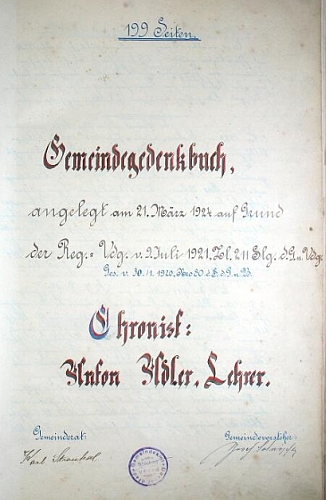 199 Seiten.
Gemeindegedenkbuch,
angelegt am 21. März 1924 auf Grund
der Reg.= Vdg. v. 9. Juli 1921, Zl. 211 Slg. d. G. u. Vdg.
Ges. v. 30./1. 1920, No 80 d. S. d. G. u. Vd.
Chronist:
Anton Adler, Lehrer.
Gemeinderat: Gemeindevorsteher:
Karl Josef